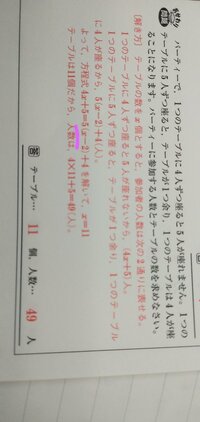 パーティーで、1つのテーブルに4人ずつ座ると5人が座れません。1つの
テーブルに5人ずつ座ると、テーブルが1つ余り、1つのテーブルは4人が座
ることになります。パーティーに参加する人数とテーブルの数を求めなさい。
[解き方] テーブルの数をx個とすると、参加者の人数は次の2通りに表せる。
1つのテーブルに4人ずつ座ると5人が座れないから、(4x+5)人。
1つのテーブルに5人ずつ座ると、テーブルが1つ余り、1つのテーブル
に4人が座るから、5(x−2)+4(人)。
よって、方程式4x+5=5(x−2)+4を解いて、x=11
テーブルは11個だから、人数は、4×11+5=49(人)。
答 テーブル… 11 個、人数… 49 人